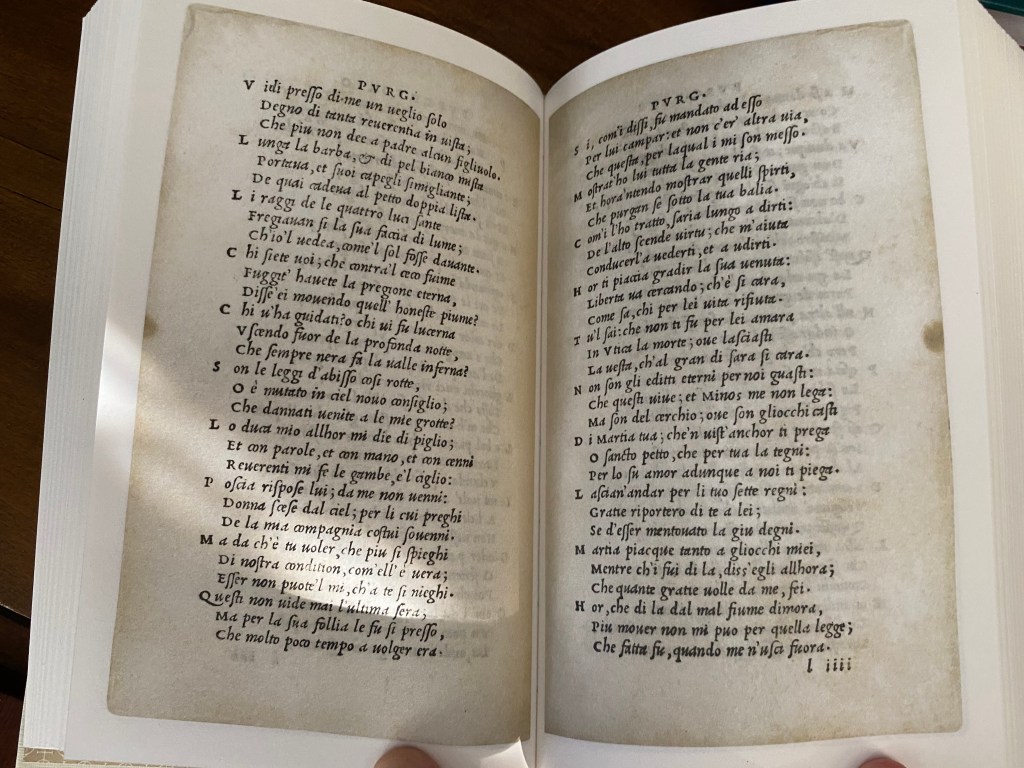 PVRG.
V idi presso di me un ueglio solo
Degno di tanta reuerentia in uista;
Che piu non dee a padre alcun figliuolo.
L unga la barba, & di pel bianco mista
Portaua, et suoi capegli simigliante;
De quai cadeua al petto doppia lista.
L i raggi de le quattro luci sante
Fregiauan si la sua faccia di lume;
Ch'io'l uedea, come'l sol fosse dauante.
C hi siete uoi; che contra'l cieco fiume
Fuggit' hauete la pregione eterna,
Diss'ei mouendo quell' honeste piume?
C hi u'ha guidati? o chi ui fu lucerna
Vscendo fuor de la profonda notte,
Che sempre nera fa la ualle inferna?
S on le leggi d'abisso cosi rotte,
O è mutato in ciel nouo consiglio;
Che dannati uenite a le mie grotte?
L o duca mio allhor mi die di piglio;
Et con parole, et con mano, et con cenni
Reuerenti mi fe le gambe, e'l ciglio:
P oscia rispose lui; da me non uenni:
Donna scese dal ciel; per li cui preghi
De la mia compagnia costui souenni.
M a da ch'è tu uoler, che piu si spieghi
Di nostra condition, com'ell' è uera;
Esser non puote'l mi, ch'a te si nieghi.
Questi non uide mai l'ultima sera;
Ma per la sua follia le fu si presso,
Che molto poco tempo a uolger era.
PVRG.
S i, com'i dissi, fu mandato ad esso
Per lui campar: et non c'er' altra uia,
Che questa, per laqual i mi son messo.
M ostrat'ho lui tutta la gente ria;
Et hora'ntendo mostrar quelli spirti,
Che purgan se sotto la tua balia.
C om'i l'ho tratto, saria lungo a dirti:
De l'alto scende uirtu; che m'aiuta
Conducerl'a uederti, et a udirti.
H or ti piaccia gradir la sua uenuta:
Liberta ua cercando; ch'è si cara,
Come sa, chi per lei uita rifiuta.
T u'l sai: che non ti fu per lei amara
In Vtica la morte; oue lasciasti
La uesta, ch'al gran di sara si cara.
N on son gli editti eterni per noi guasti:
Che questi uiue; et Minos me non lega:
Ma son del cerchio; oue son gliocchi casti
D i Martia tua; che'n uist'anchor ti prega
O sancto petto, che per tua la tegni:
Per lo su amor adunque a noi ti piega.
L ascian'andar per li tuo sette regni:
Gratie riportero di te a lei;
Se d'esser mentouato la giu degni.
M artia piacque tanto a gliocchi miei,
Mentre ch'i fui di la, diss'egli allhora;
Che quante gratie uolle da me, fei.
H or, che di la dal mal fiume dimora,
Piu mouer non mi puo per quella legge;
Che fatta fu, quando me n'usci fuora.
l iiii